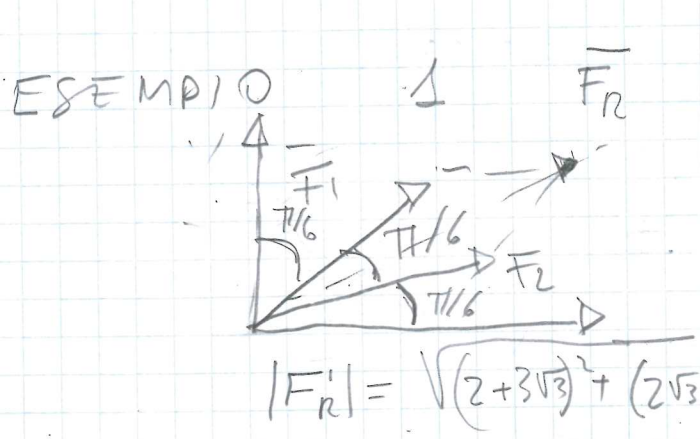 ESEMPIO 1 F̅_R
F̅1
π/6
π/6
F̅2
π/6
|F_R| = √(2+3√3)² + (2√3